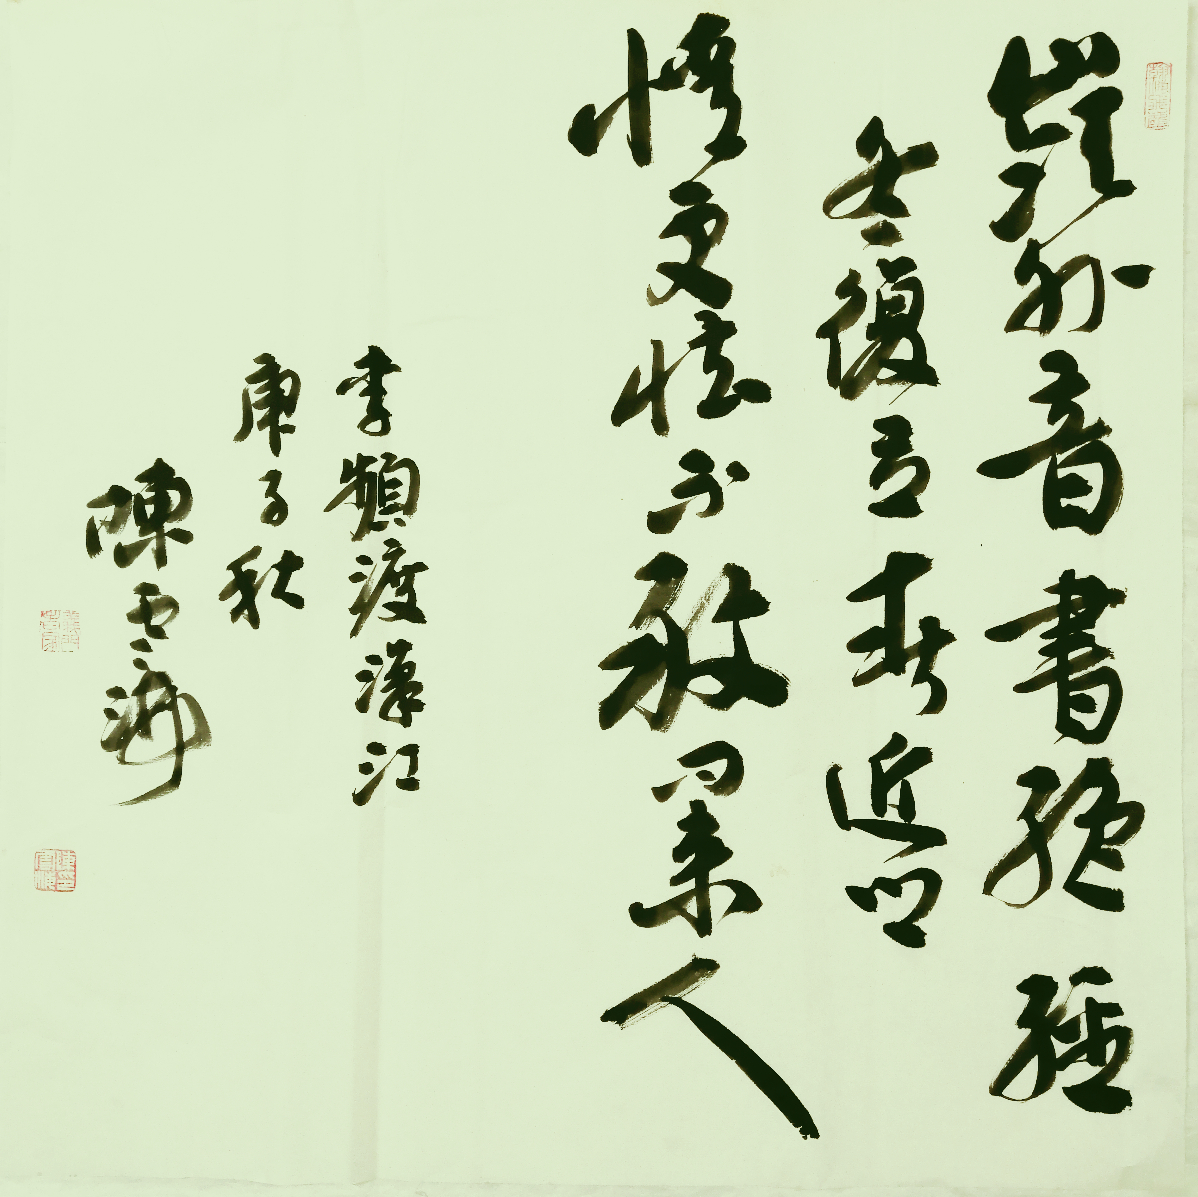 嶺外音書絕經
冬復立春近鄉
情更怯不敢問來人
李頻渡漢江
庚子秋
陳雲